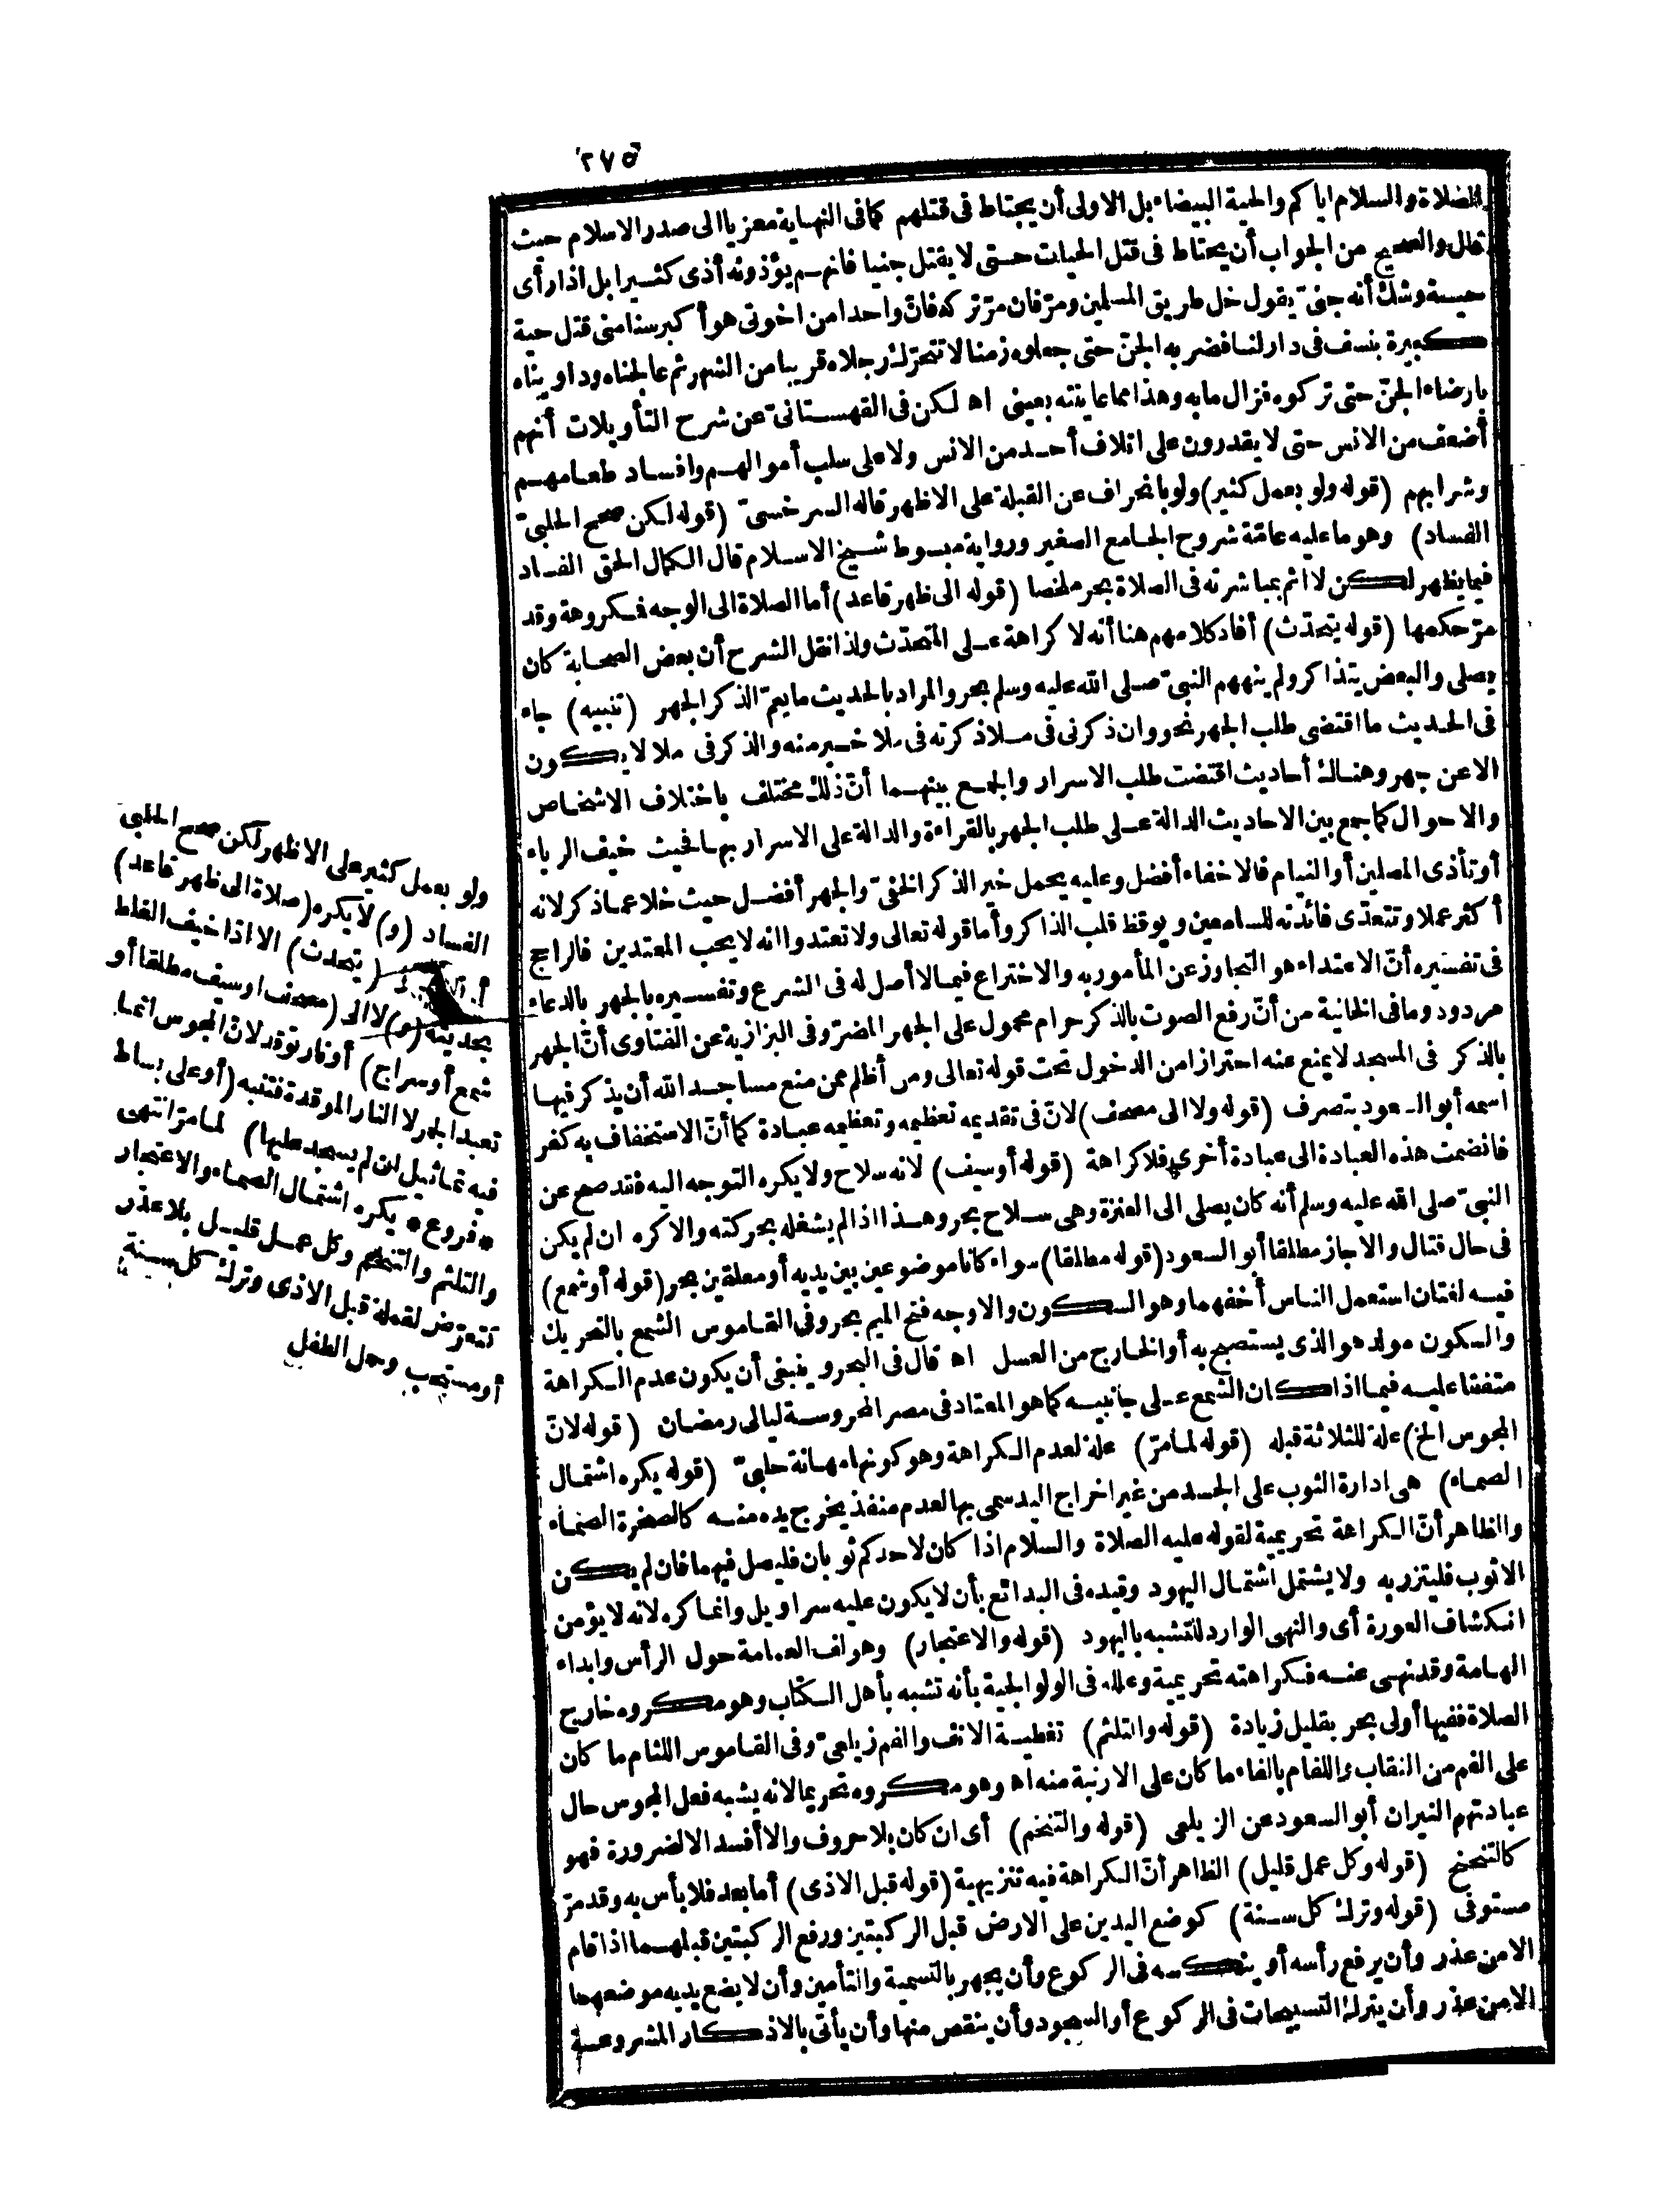 ٢٧٥
الصلاة والسلام اياكم والحية البيضاء بل الاولى أن يحتاط فى قتلهم كما فى النهاية معزيا الى صدر الاسلام حيث
قال والصحيح من الجواب أن يحتاط فى قتل الحيات حتى لا يقتل جنيا فانهم يؤذونه أذى كثيرا بل اذا رأى
حية وشك أنه جنى يقول خل طريق المسلمين ومر فان مرّ تركه فان واحدا من اخوتى هو أكبر سنا منى قتل حية
كبيرة بسيف فى دار لنا فضربه الجنّ حتى جعلوه زمنا لا تتحرّك رجلاه قريبا من الشهر ثم عالجناه وداويناه
بارضاء الجنّ حتى تركوه فزال ما به وهذا مما عاينته بعينى اه لكن فى القهستانىّ عن شرح التأويلات أنهم
أضعف من الانس حتى لا يقدرون على اتلاف أحد من الانس ولا على سلب أموالهم وافساد طعامهم
وشرابهم (قوله ولو بعمل كثير) ولو بانحراف عن القبلة على الاظهر قاله السرخسىّ (قوله لكن صحح الحلبىّ
الفساد) وهو ما عليه عامّة شروح الجامع الصغير ورواية مبسوط شيخ الاسلام قال الكمال الحق الفساد
فيما يظهر لكن لا اثم بمباشرته فى الصلاة بحر ملخصا (قوله الى ظهر قاعد) أما الصلاة الى الوجه فمكروهة وقد
مرّ حكمها (قوله يتحدّث) أفاد كلامهم هنا أنه لا كراهة على المتحدّث ولذا نقل الشرح أن بعض الصحابة كان
يصلى والبعض يتذاكر ولم ينههم النبىّ صلى الله عليه وسلم بحر والمراد بالحديث ما يعمّ الذكر الجهر (تنبيه) جاء
فى الحديث ما اقتضى طلب الجهر نحو وان ذكرنى فى ملا ذكرته فى ملا خير منه والذكر فى ملا لا يكون
الا عن جهر وهناك أحاديث اقتضت طلب الاسرار والجمع بينهما أنّ ذلك مختلف باختلاف الاشخاص
والاحوال كما جمع بين الاحاديث الدالة على طلب الجهر بالقراءة والدالة على الاسرار بها فحيث خيف الرياء
أو تأذى المصلين أو النيام فالاخفاء أفضل وعليه يحمل خير الذكر الخفىّ والجهر أفضل حيث خلا عما ذكر لانه
أكثر عملا وتتعدّى فائدّته للسامعين ويوقظ قلب الذاكر وأما قوله تعالى ولا تعتدوا انه لا يحب المعتدين فالراجح
فى تفسيره أنّ الاعتداء هو التجاوز عن المأمور به والاختراع فيما لا أصل له فى الشرع وتفسيره بالجهر بالدعاء
مردود وما فى الخانية من أنّ رفع الصوت بالذكر حرام محمول على الجهر المضرّ وفى البزازية عن الفتاوى أنّ الجهر
بالذكر فى المسجد لا يمنع عنه احترازا من الدخول تحت قوله تعالى ومن أظلم ممن منع مساجد الله أن يذكر فيها
اسمه أبو السعود بتصرف (قوله ولا الى مصحف) لانّ فى تقديمه تعظيمه وتعظيمه عبادة كما أنّ الاستخفاف به كفر
فانضمت هذه العبادة الى عبادة أخرى فلا كراهة (قوله أو سيف) لانه سلاح ولا يكره التوجه اليه فقد صح عن
النبىّ صلى الله عليه وسلم أنه كان يصلى الى العنزة وهى سلاح بحر وهذا اذا لم يشغله بحركته والا كره ان لم يكن
فى حال قتال والا جاز مطلقا أبو السعود (قوله مطلقا) سواء كانا موضوعين بين يديه أو معلقين بحر (قوله أو شمع)
فيه لغتان استعمل الناس أخفهما وهو السكون والاوجه فتح الميم بحر وفى القاموس الشمع بالتحريك
والسكون مولد هو الذى يستصبح به أو الخارج من العسل اه قال فى البحر وينبغى أن يكون عدم الكراهة
متفقا عليه فيما اذا كان الشمع على جانبيه كما هو المعتاد فى مصر المحروسة ليالى رمضان (قوله لانّ
المجوس الخ) علة للثلاثة قبله (قوله لما مرّ) علة لعدم الكراهة وهو كونها مهانة حلبىّ (قوله يكره اشتمال
الصماء) هى ادارة الثوب على الجسد من غير اخراج اليد سمى بها لعدم منفذ يخرج يده منه كالصخرة الصماء
والظاهر أنّ الكراهة تحريمية لقوله عليه الصلاة والسلام اذا كان لاحدكم ثوبان فليصل فيهما فان لم يكن
الا ثوب فليتزر به ولا يشتمل اشتمال اليهود وقيده فى البدائع بأن لا يكون عليه سراويل وانما كره لانه لا يؤمن
انكشاف العورة أى والنهى الوارد للتشبه باليهود (قوله والاعتجار) وهو لف العمامة حول الرأس وابداء
الهامة وقد نهى عنه فكراهته تحريمية وعلله فى الولوالجية بأنه تشبه بأهل الكتاب وهو مكروه خارج
الصلاة ففيها أولى بحر بقليل زيادة (قوله والتلثم) تغطية الانف والفم زيلعىّ وفى القاموس اللثام ما كان
على الفم من النقاب واللفام بالفاء ما كان على الارنبة منه اه وهو مكروه تحريما لانه يشبه فعل المجوس حال
عبادتهم النيران أبو السعود عن الزيلعى (قوله والتنخم) أى ان كان بلا حروف والا أفسد الا لضرورة فهو
كالتنحنح (قوله وكل عمل قليل) الظاهر أنّ الكراهة فيه تنزيهية (قوله قبل الاذى) أما بعد فلا بأس به وقد مرّ
مستوفى (قوله وترك كل سنة) كوضع اليدين على الارض قبل الركبتين ورفع الركبتين قبلهما اذا قام
الا من عذر وأن يرفع رأسه أو ينكسه فى الركوع وأن يجهر بالتسمية والتأمين وأن لا يضع يديه موضعهما
الا من عذر وأن يترك التسبيحات فى الركوع أو السجود وأن ينقص منها وأن يأتى بالاذكار المشروعة
ولو بعمل كثير على الاظهر لكن صحح الحلبى
الفساد (و) لا يكره (صلاة الى ظهر قاعد)
(يتحدث) الا اذا خيف الغلط
بحديثه (و) لا الى (مصحف او سيف مطلقا أو
شمع أو سراج) أو نار توقد لان المجوس انما
تعبد الجمر لا النار الموقدة فتنبه (أو على بساط
فيه تماثيل ان لم يسجد عليها) لما مرّ انتهى
* فروع * يكره اشتمال الصماء والاعتجار
والتلثم والتنخم وكل عمل قليل بلا عذر
كتعرّض لقملة قبل الاذى وترك كل سنة
أو مستحب وحمل الطفل